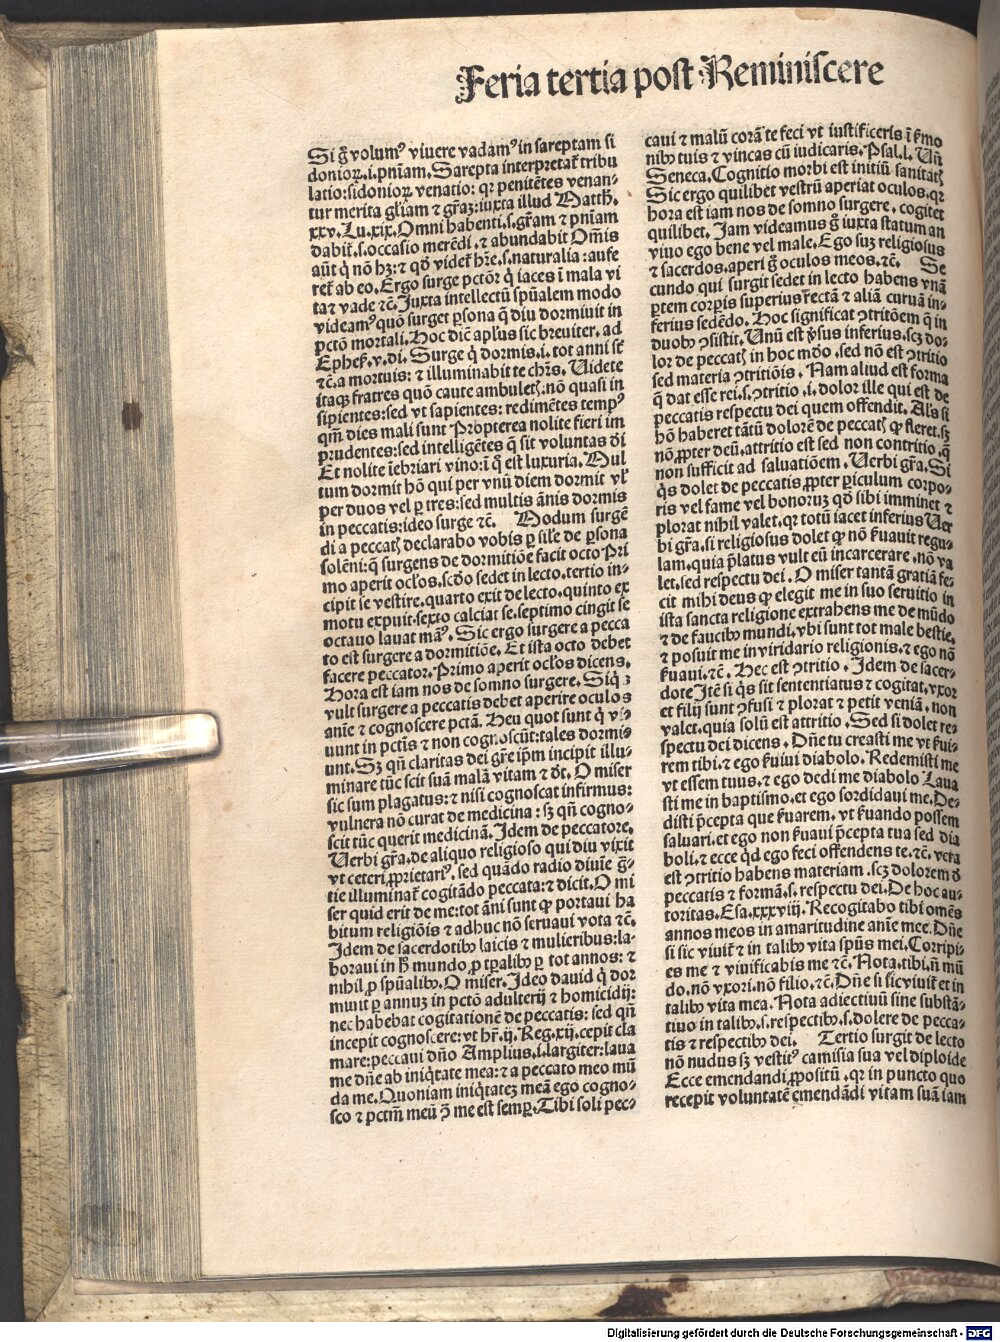 Feria tertia post Reminiscere
Si g̃ volumꝰ viuere vadamꝰ in sareptam si
donioꝝ.i.pn̄iam. Sarepta interpretat᷑ tribu
latio: sidonioꝝ venatio: qꝛ penitētes venan-
tur merita gl̄iam ⁊ gr̄az: iuxta illud Matth.
xxv. Lu.xix. Omni habenti.s.gr̄am ⁊ pn̄iam
dabit᷑.s.occasio merēdi .⁊ abundabit Omīs
aūt q̇ nō hꝫ: ⁊ qḋ videt᷑ hr̄e.s.naturalia: aufe
ret᷑ ab eo. Ergo surge pctōr q̇ iaces ī mala vi
ta ⁊ vade ⁊c̄. Juxta intellectū spūalem modo
videamꝰ quō surget ꝑsona q̄ diu dormiuit in
pctō mortali. Hoc dic̄ apl̄us sic breuiter. ad
Ephes̄.v.di. Surge q̇ dormis.i. tot anni sē
⁊c̄.a mortuis: ⁊ illuminabit te chr̄s. Uidete
itaqꝫ fratres quō caute ambulet̄: nō quasi in
sipientes: sed vt sapientes: redimētes tempꝰ
qm̄ dies mali sunt Propterea nolite fieri im
prudentes: sed intelligētes q̄ sit voluntas dī
Et nolite īebriari vino: ī q̇ est luxuria. Mul
tum dormit hō qui per vnū diem dormit vl̄
per duos vel ꝑ tres: sed multis ānis dormis
in peccatis: ideo surge ⁊c̄. Modum surgē
di a peccat̄ declarabo vobis ꝑ sil̄e de ꝑsona
solēni: q̄ surgens de dormitiōe facit octo Pri
mo aperit ocl̄os. scḋo sedet in lecto. tertio in-
cipit se vestire. quarto exit de lecto. quinto ex
motu expuit. sexto calciat se. septimo cingit se
octauo lauat manꝰ. Sic ergo surgere a pecca
to est surgere a dormitiōe. Et ista octo debet
facere peccator. Primo aperit ocl̄os dicens.
Hora est iam nos de somno surgere. Siqͥs
vult surgere a peccatis debet aperire oculos
anīe ⁊ cognoscere pctā. Heu quot sunt q̇ vi-
uunt in pctīs ⁊ non cognoscūt: tales dormi-
unt. Sꝫ qn̄ claritas dei gr̄e ip̄m incipit illu-
minare tūc scit suā malā vitam ⁊ dt̄. O miser
sic sum plagatus: ⁊ nisi cognoscat infirmus:
vulnera nō curat de medicina: sꝫ qn̄ cogno-
scit tūc querit medicinā. Idem de peccatore.
Uerbi gr̄a. de aliquo religioso qui diu vixit
vt ceteri ꝓprietarꝰ. sed quādo radio diuīe g̃-
tie illuminat᷑ cogitādo peccata: ⁊ dicit. O mi
ser quid erit de me: tot āni sunt ꝙ portaui ha
bitum religiōis ⁊ adhuc nō seruaui vota ⁊c̄.
Idem de sacerdotibꝰ laicis ⁊ mulieribus: la-
boraui in ħ mundo ꝓ tꝑalibꝰ ꝑ tot annos: ⁊
nihil ꝓ spūalibꝰ. O miser. Ideo dauid q̇ dor
miuit ꝑ annuꝫ in pctō adulterij ⁊ homicidij:
nec habebat cogitationē de peccatis: sed qn̄
incepit cognoscere: vt hr̄.ij. Reg.xij. cepit cla
mare: peccaui dn̄o Amplius.i. largiter: laua
me dn̄e ab iniq̇tate mea: ⁊ a peccato meo mū
da me. Quoniam iniq̇tateꝫ meā ego cogno-
sco ⁊ pctm̄ meū ꝯ̄ me est semꝑ. Tibi soli pec-
caui ⁊ malū corā te feci vt iustificeris ī ẜmo
nibꝰ tuis ⁊ vincas cū iudicaris. Psal.l. Un̄
Seneca. Cognitio morbi est initiū sanitat̄
Sic ergo quilibet vestrū aperiat oculos. qꝛ
hora est iam nos de somno surgere. cogitet
quilibet. Jam videamus g̃ iuxta statum an
viuo ego bene vel male. Ego suꝫ religiosus
⁊ sacerdos. aperi g̃ oculos meos.⁊c̄. Se
cundo qui surgit sedet in lecto habens vnā
ꝑtem corꝑis superius r̄ectā ⁊ aliā curuā in-
ferius sedēdo. Hoc significat ꝯtritōem q̄ in
duobꝰ ꝯsistit. Unū est ꝟsus inferius. scꝫ do-
lor de peccat̄ in hoc mḋo .sed nō est ꝯtritio
sed materia ꝯtritiōis. Nam aliud est forma
q̄ dat esse rei.s. ꝯtritio .i. dolor ille qui est de
peccatis respectu dei quem offendit. Al̄s si
hō haberet tātū dolorē de peccat̄ ꝙ fleret. sꝫ
nō ꝓpter deū. attritio est sed non contritio. q̄
non sufficit ad saluatiōem. Uerbi gr̄a. Si
q̇s dolet de peccatis ꝓpter ꝑiculum corpo-
ris vel fame vel honoruꝫ qḋ sibi imminet ⁊
plorat nihil valet. qꝛ totū iacet inferius Uer
bi gr̄a. si religiosus dolet ꝙ nō ẜuauit regu-
lam. quia p̄latus vult eū incarcerare .nō va
let. sed respectu dei. O miser tantā gratiā fe-
cit mihi deus ꝙ elegit me in suo seruitio in
ista sancta religione extrahens me de mūdo
⁊ de faucibꝰ mundi. vbi sunt tot male bestie.
⁊ posuit me in viridario religionis. ⁊ ego nō
ẜuaui.⁊c̄. Hec est ꝯtritio. Idem de sacer-
dote Itē si q̇s sit sententiatus ⁊ cogitat. vxor
et filij sunt ꝯfusi ⁊ plorat ⁊ petit veniā. non
valet. quia solū est attritio. Sed si dolet re-
spectu dei dicens. Dn̄e tu creasti me vt ẜui-
rem tibi. ⁊ ego ẜuiui diabolo. Redemisti me
vt essem tuus. ⁊ ego dedi me diabolo Laua
sti me in baptismo. et ego sordidaui me. De-
disti p̄cepta que ẜuarem. vt ẜuando possem
saluari. et ego non ẜuaui p̄cepta tua sed dia
boli. ⁊ ecce q̇d ego feci offendens te.⁊c̄. vera
est ꝯtritio habens materiam .scꝫ dolorem ḋ
peccatis ⁊ formā.s. respectu dei. De hoc au-
toritas. Esa.xxxviij. Recogitabo tibi omēs
annos meos in amaritudine anīe mee. Dn̄e
si sic viuit᷑ ⁊ in talibꝰ vita spūs mei. Corripi-
es me ⁊ viuificabis me ⁊c̄. Nota. tibi. n̄ mū
do. nō vxori. nō filio.⁊c̄. Dn̄e si sic viuit᷑ et in
talibꝰ vita mea. Nota adiectiuū sine substā-
tiuo in talibꝰ.s. respectibꝰ.s. dolere de pecca-
tis ⁊ respectibꝰ dei. Tertio surgit de lecto
nō nudus sꝫ vestitꝰ camisia sua vel diploide
Ecce emendandi ꝓpositū .qꝛ in puncto quo
recepit voluntatē emendādi vitam suā iam
Digitalisierung gefördert durch die Deutsche Forschungsgemeinschaft - DFG